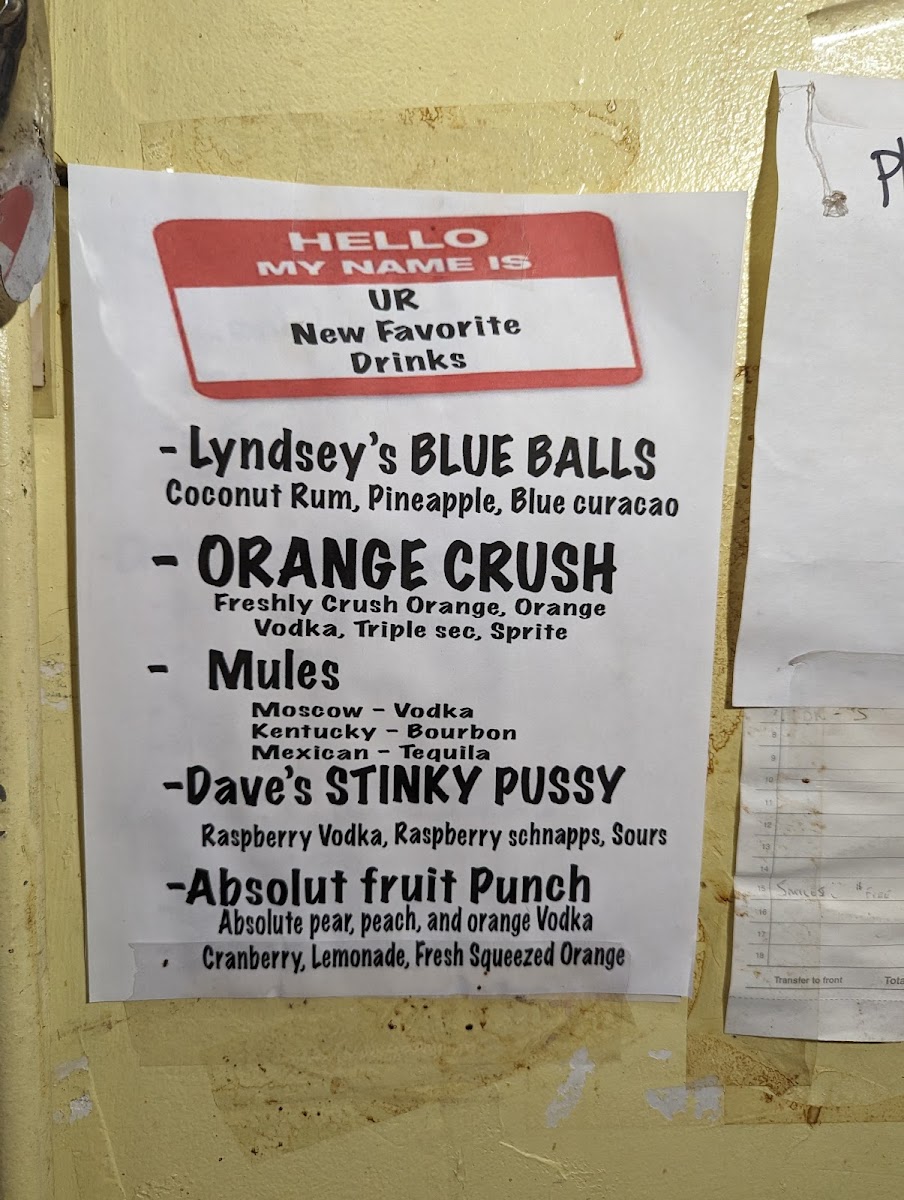 HELLO
MY NAME IS
UR
New Favorite
Drinks
- Lyndsey's BLUE BALLS
Coconut Rum, Pineapple, Blue curacao
- ORANGE CRUSH
Freshly Crush Orange, Orange
Vodka, Triple sec, Sprite
- Mules
Moscow - Vodka
Kentucky - Bourbon
Mexican - Tequila
-Dave's STINKY PUSSY
Raspberry Vodka, Raspberry schnapps, Sours
-Absolut fruit Punch
Absolute pear, peach, and orange Vodka
Cranberry, Lemonade, Fresh Squeezed Orange
8
9
10
11
12
13
14
15 Smiles :) $ Free
16
17
18
Transfer to front